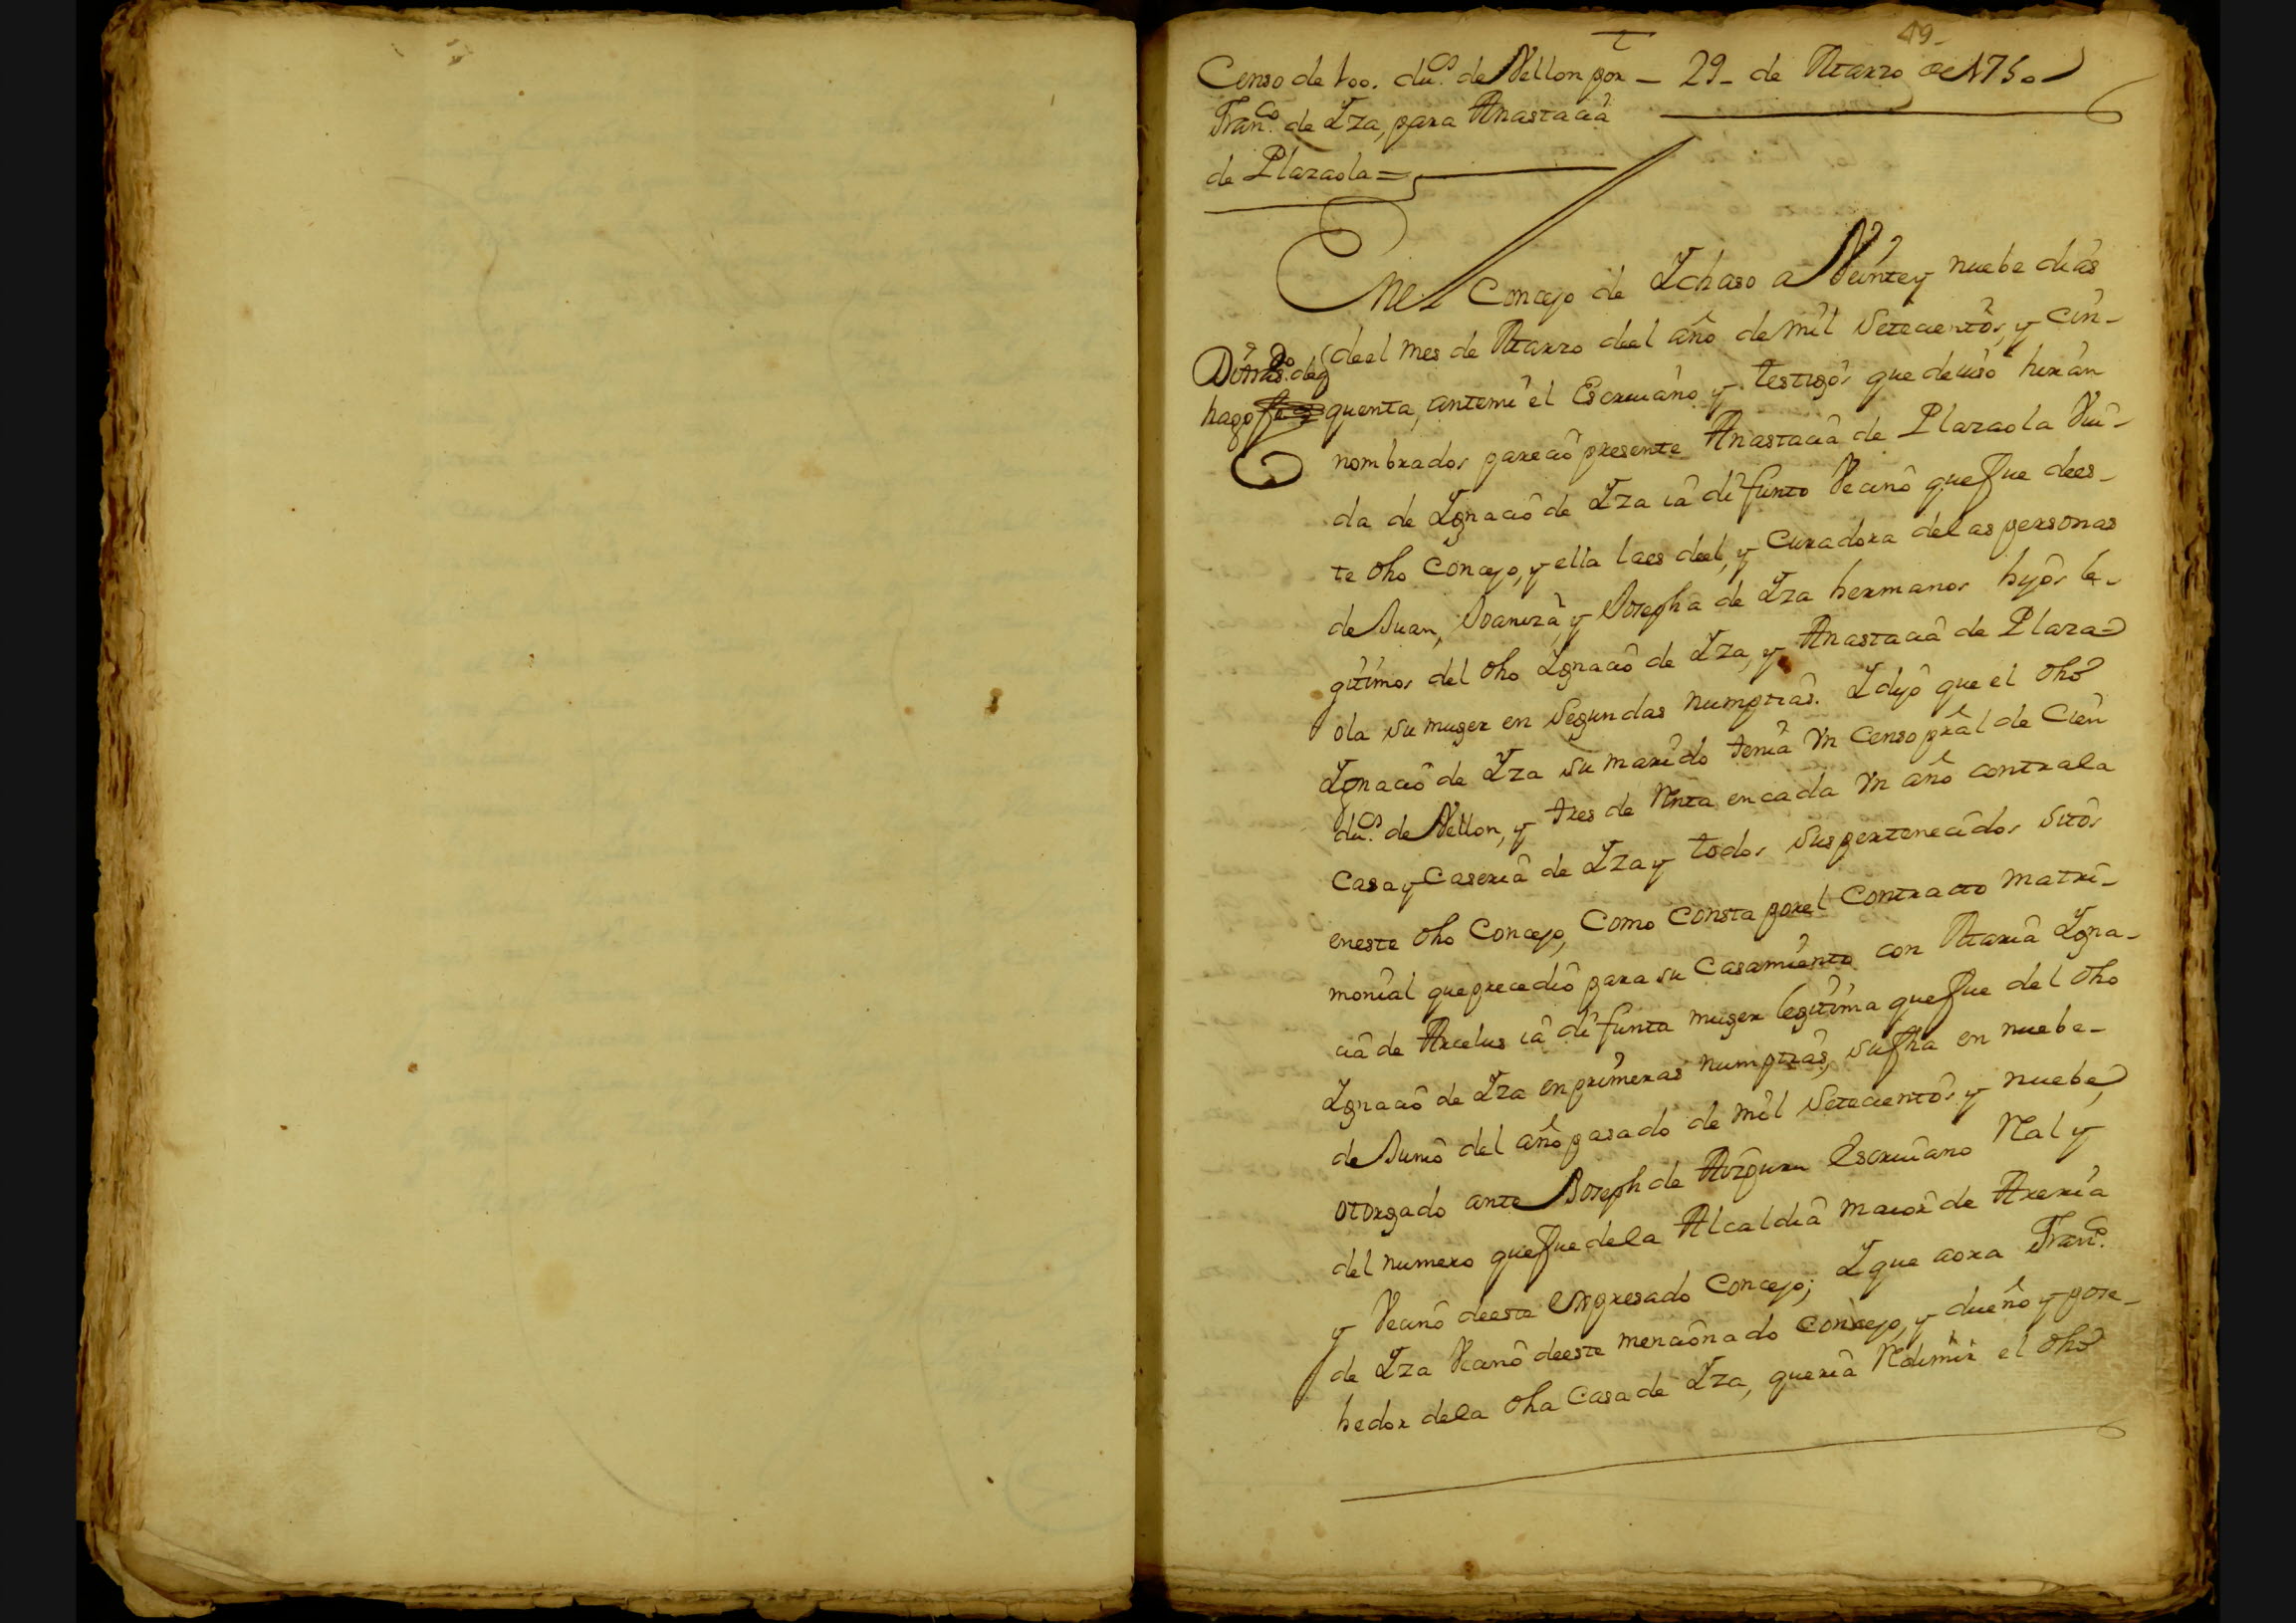 49-
Censo de 100. du.os de Vellon por - 29- de Marzo de 1750
Fran.co de Yza, para Anastacia
de Plazaola=
En el Concejo de Ychaso a Veintey nuebe dias
deel mes de Marzo deel año de mil Setecientos, y Cin-
hago fee
quenta, antemi el Escriuano y testigos que deiuso hiran
nombrados parecio presente Anastacia de Plazaola Viu-
da de Ygnacio de Yza ia difunto Vecino quefue dees-
te dho Concejo, y ella laes deel, y Curadora delas personas
de Juan, Joaniza, y Josepha de Yza hermanos hijos le-
gitimos del dho Ygnacio de Yza, y Anastacia de Plaza=
ola su muger en Segundas numptias. Y dijo que el dho
Ygnacio de Yza su marido tenia Vn Censo pral de Cien
du.os de Vellon, y tres de Renta encada Vn año contrala
Casa y Caseria de Yza y todos suspertenecidos sitos
eneste dho Concejo, Como Consta porel Contracto matri-
monial queprecedio para su Casamiento con Maria Ygna-
cia de Arcelus ia difunta muger legitima quefue del dho
Ygnacio de Yza enprimeras numptias, sufha en nuebe-
de Junio del año pasado de mil Setecientos y nuebe,
otorgado ante Joseph de Escriuano Real y
del numero quefue dela Alcaldia maior de Areria
y Vecino deeste Expresado Concejo; Y que aora Fran.co
de Yza Vecino deeste mencionado Concejo, y dueño y pose-
hedor dela dha Casa de Yza, queria Redimir el dho